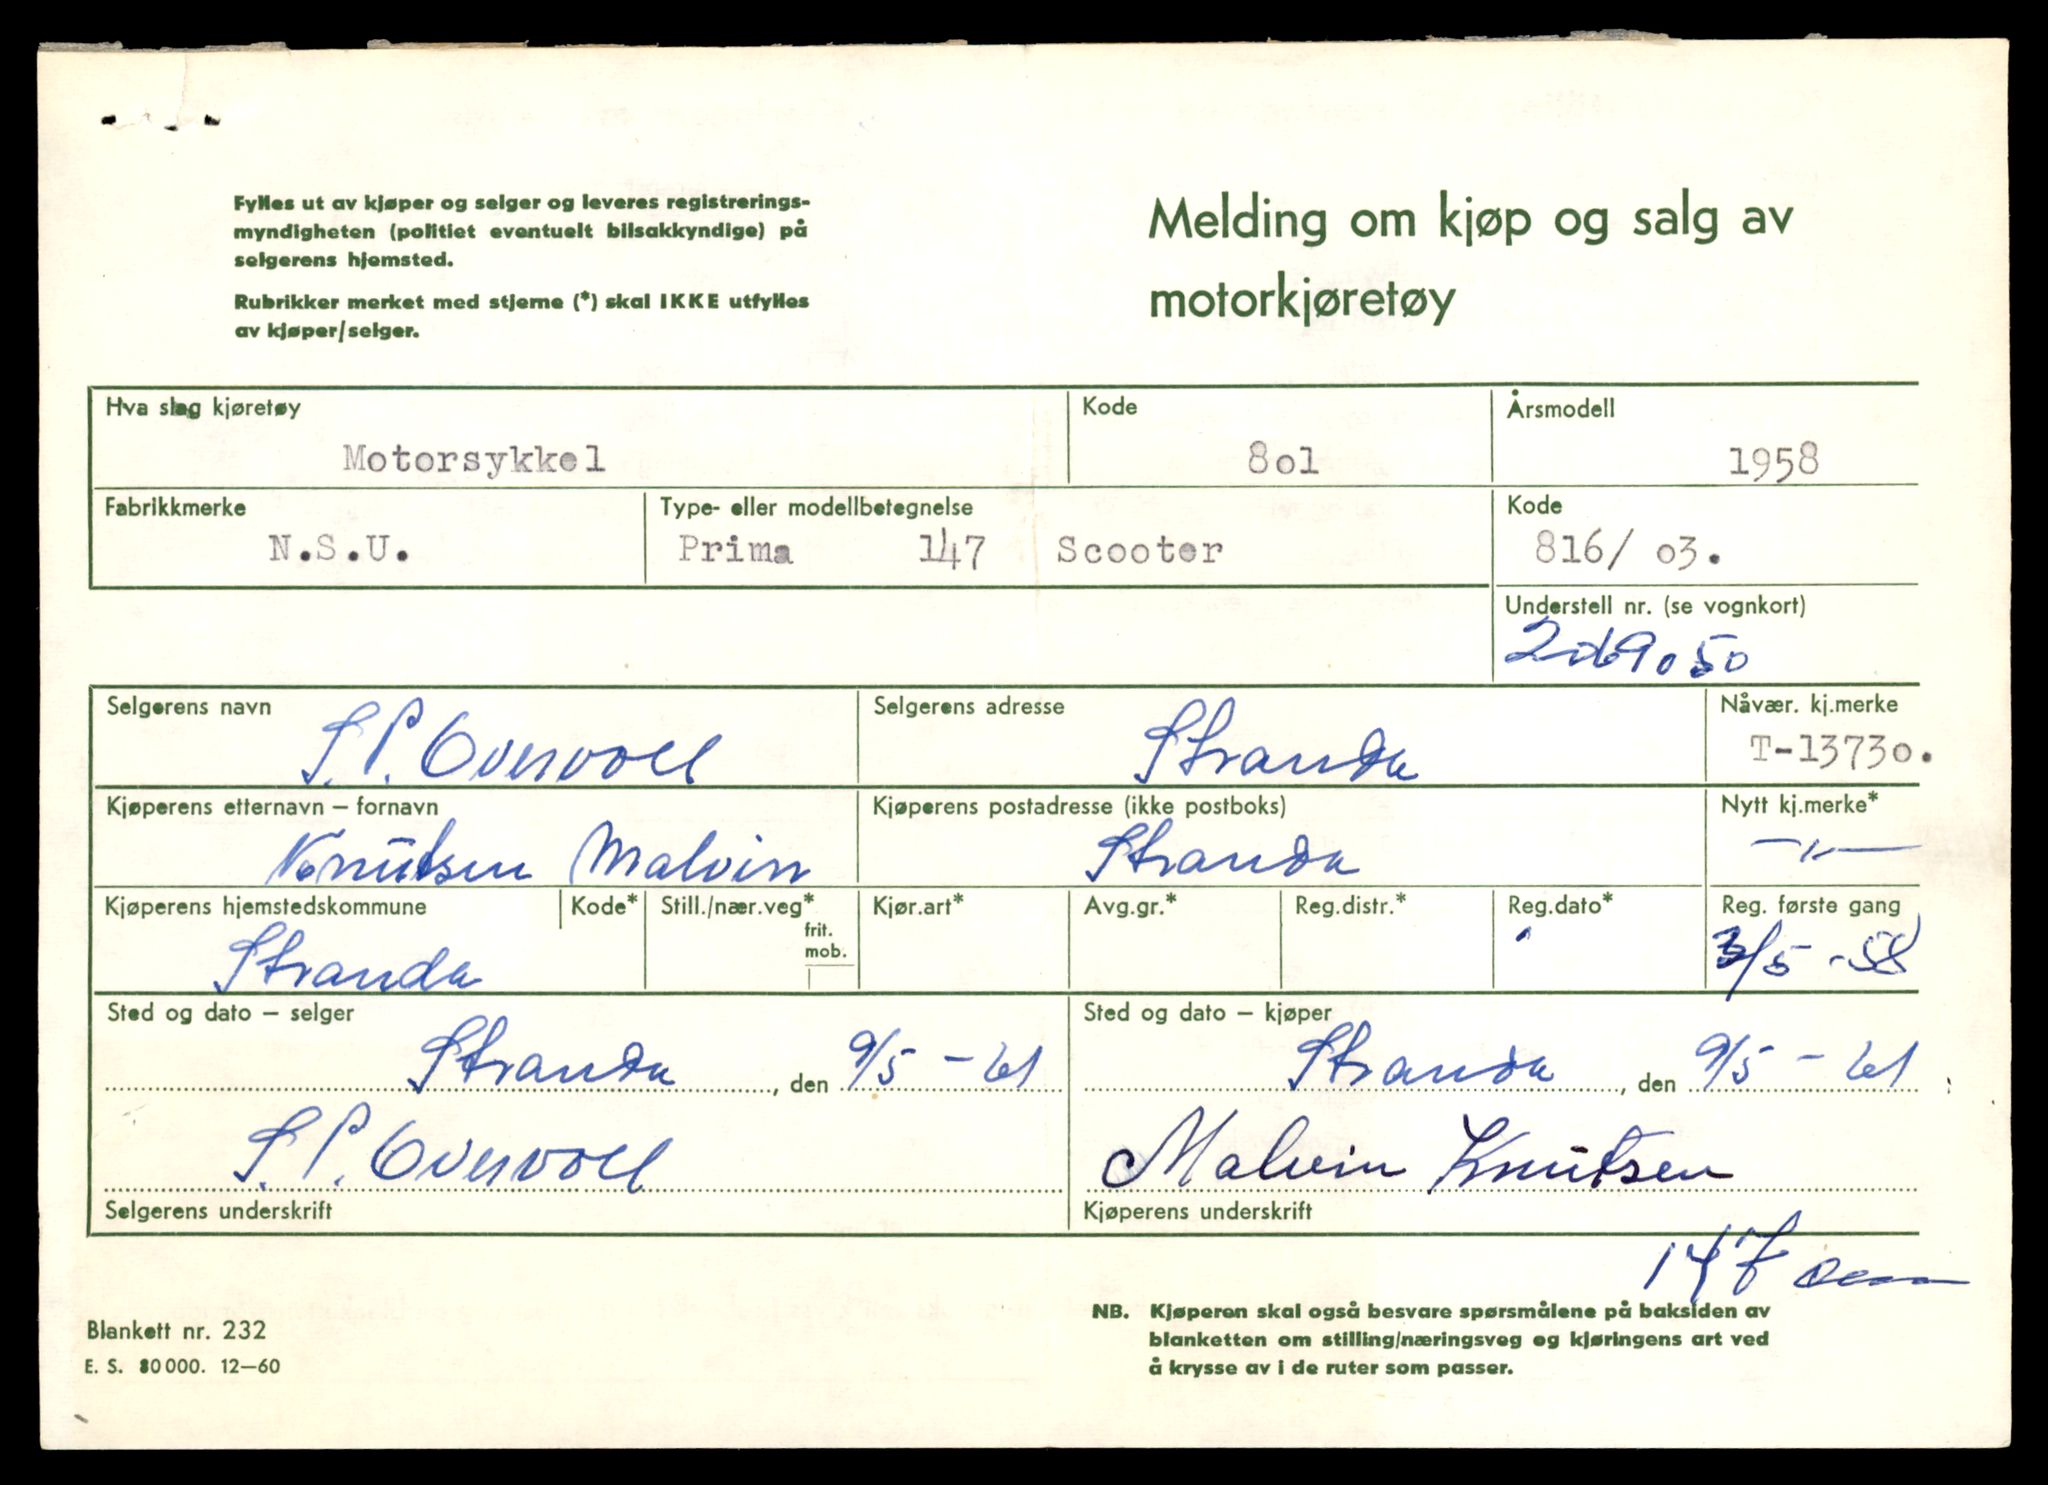 Fylles ut av kjøper og selger og leveres registrerings-
myndigheten (politiet eventuelt bilsakkyndige) på
selgerens hjemsted.
Rubrikker merket med stjerne (*) skal IKKE utfylles
av kjøper/selger.
Melding om kjøp og salg av
motorkjøretøy
Hva slag kjøretøy
Motorsykkel
Kode
8o1
Årsmodell
1958
Fabrikkmerke
N.S.U.
Type- eller modellbetegnelse
Prima 147 Scooter
Kode
816/ o3.
Understell nr. (se vognkort)
Selgerens navn
S.P. Overvoll
Selgerens adresse
Stranda
Nåvær. kj.merke
T-1373o.
Kjøperens etternavn – fornavn
Knutsen Malvin
Kjøperens postadresse (ikke postboks)
Stranda
Nytt kj.merke*
—"—
Kjøperens hjemstedskommune
Stranda
Kode*
Still./nær.veg*
frit.
mob.
Kjør.art*
Avg.gr.*
Reg.distr.*
Reg.dato*
Reg. første gang
3/5 -58
Sted og dato – selger
Stranda, den 9/5 - 61
Sted og dato – kjøper
Stranda, den 9/5 - 61
S.P. Overvoll
Selgerens underskrift
Malvin Knutsen
Kjøperens underskrift
147 ccm
NB. Kjøperen skal også besvare spørsmålene på baksiden av
blanketten om stilling/næringsveg og kjøringens art ved
å krysse av i de ruter som passer.
Blankett nr. 232
E. S. 80000. 12—60